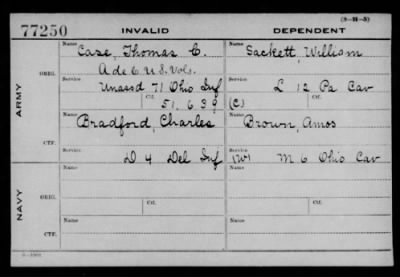 (3-M-3)
77250 INVALID DEPENDENT
Name Name
Case, Thomas C. Sackett, William
ORIG. A de C U.S. Vols.
Service Service
Unassd 71 Ohio Inf L 12 Pa Cav
Ctf. Ctf.
51,639 (C)
ARMY
Name Name
Bradford, Charles Brown, Amos
CTF.
Service Service
D 4 Del Inf (W) M 6 Ohio Cav
Name Name
ORIG. Ctf. Ctf.
NAVY
Name Name
CTF.